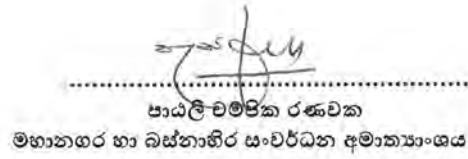 පාඨලී චම්පික රණවක
මහානගර හා බස්නාහිර සංවර්ධන අමාත්‍යාංශය